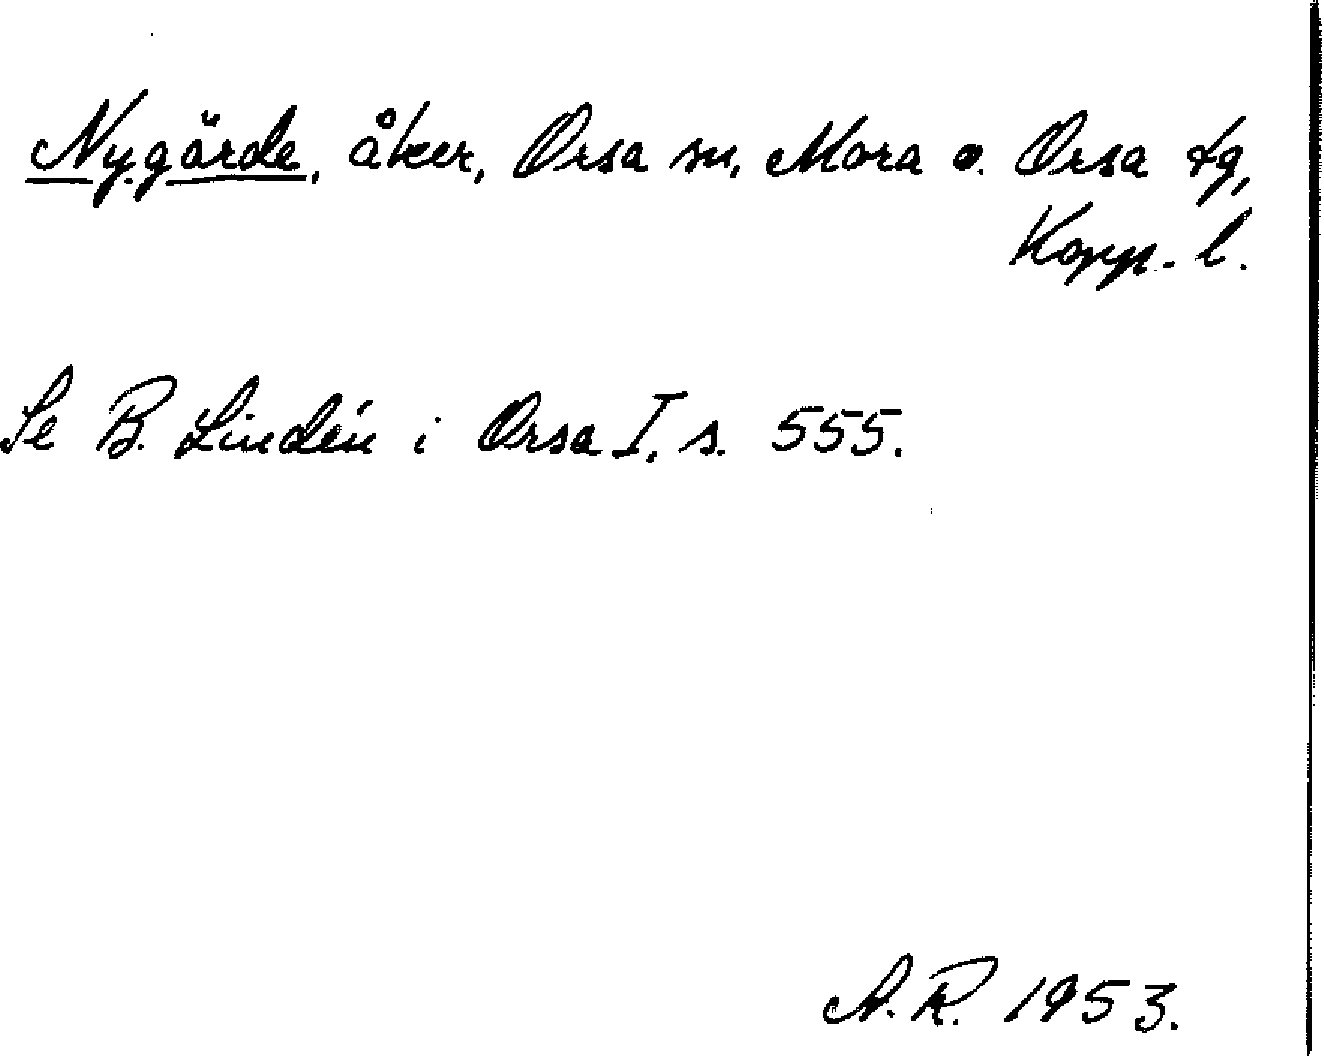 Nygärde, åker, Orsa sn, Mora o. Orsa tg,
Kopp. l.
Se B. Lindén i Orsa I, s. 555.
A. R. 1953.